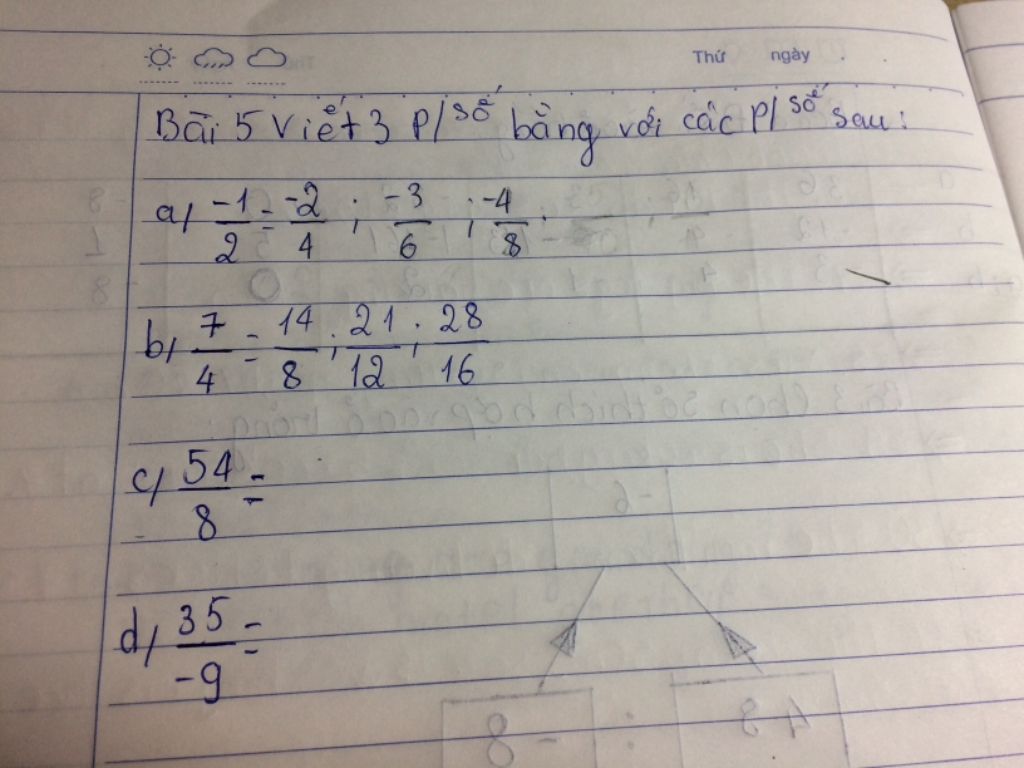 Thứ ngày
Bài 5 Viết 3 P/số bằng với các P/số sau:
a, -1/2 = -2/4 ; -3/6 ; -4/8 .
b, 7/4 = 14/8 ; 21/12 ; 28/16
c, 54/8 =
d, 35/-9 =